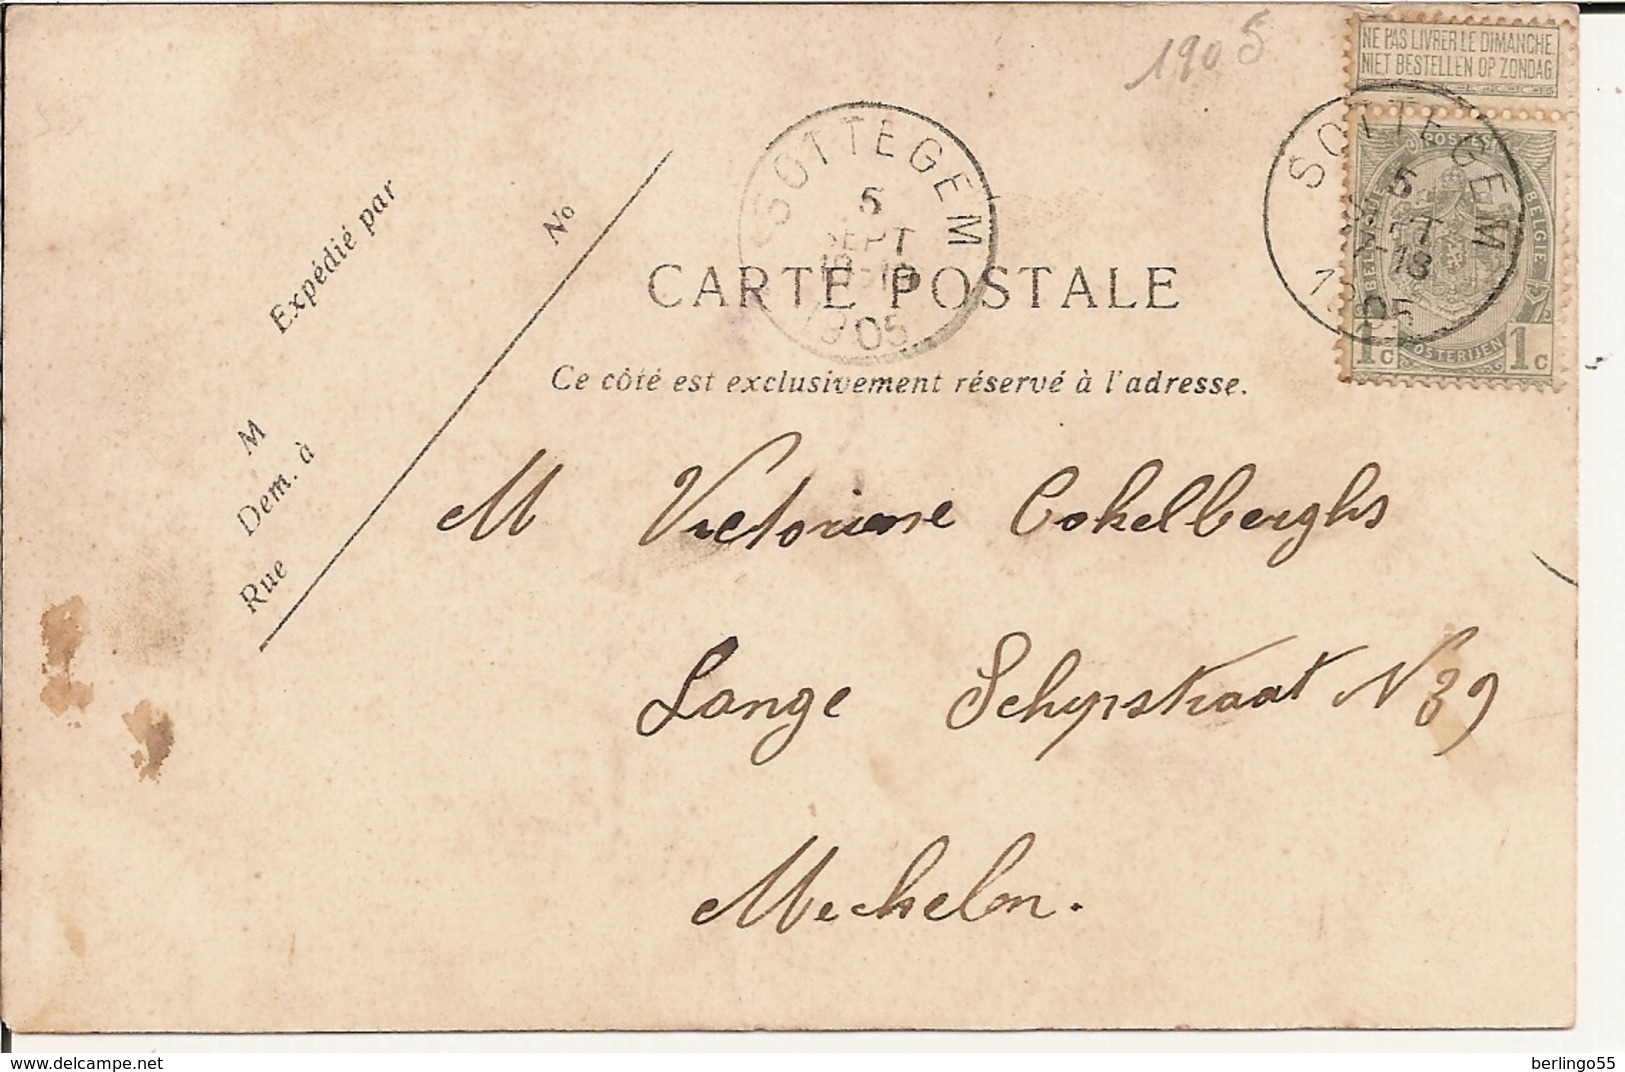 1905
NE PAS LIVRER LE DIMANCHE.
NIET BESTELLEN OP ZONDAG
SOTTEGEM
5
SEPT
1905
SOTTEGEM
5
18
1905
POSTES
BELGIQUE
BELGIE
POSTERIJEN
1c 1c
Expédié par
No
CARTE POSTALE
Ce côté est exclusivement réservé à l'adresse.
M
Dem. à
Rue
M Victorine Cokelberghs
Lange Schipstraat N 39
Mechelen.
berlingo55